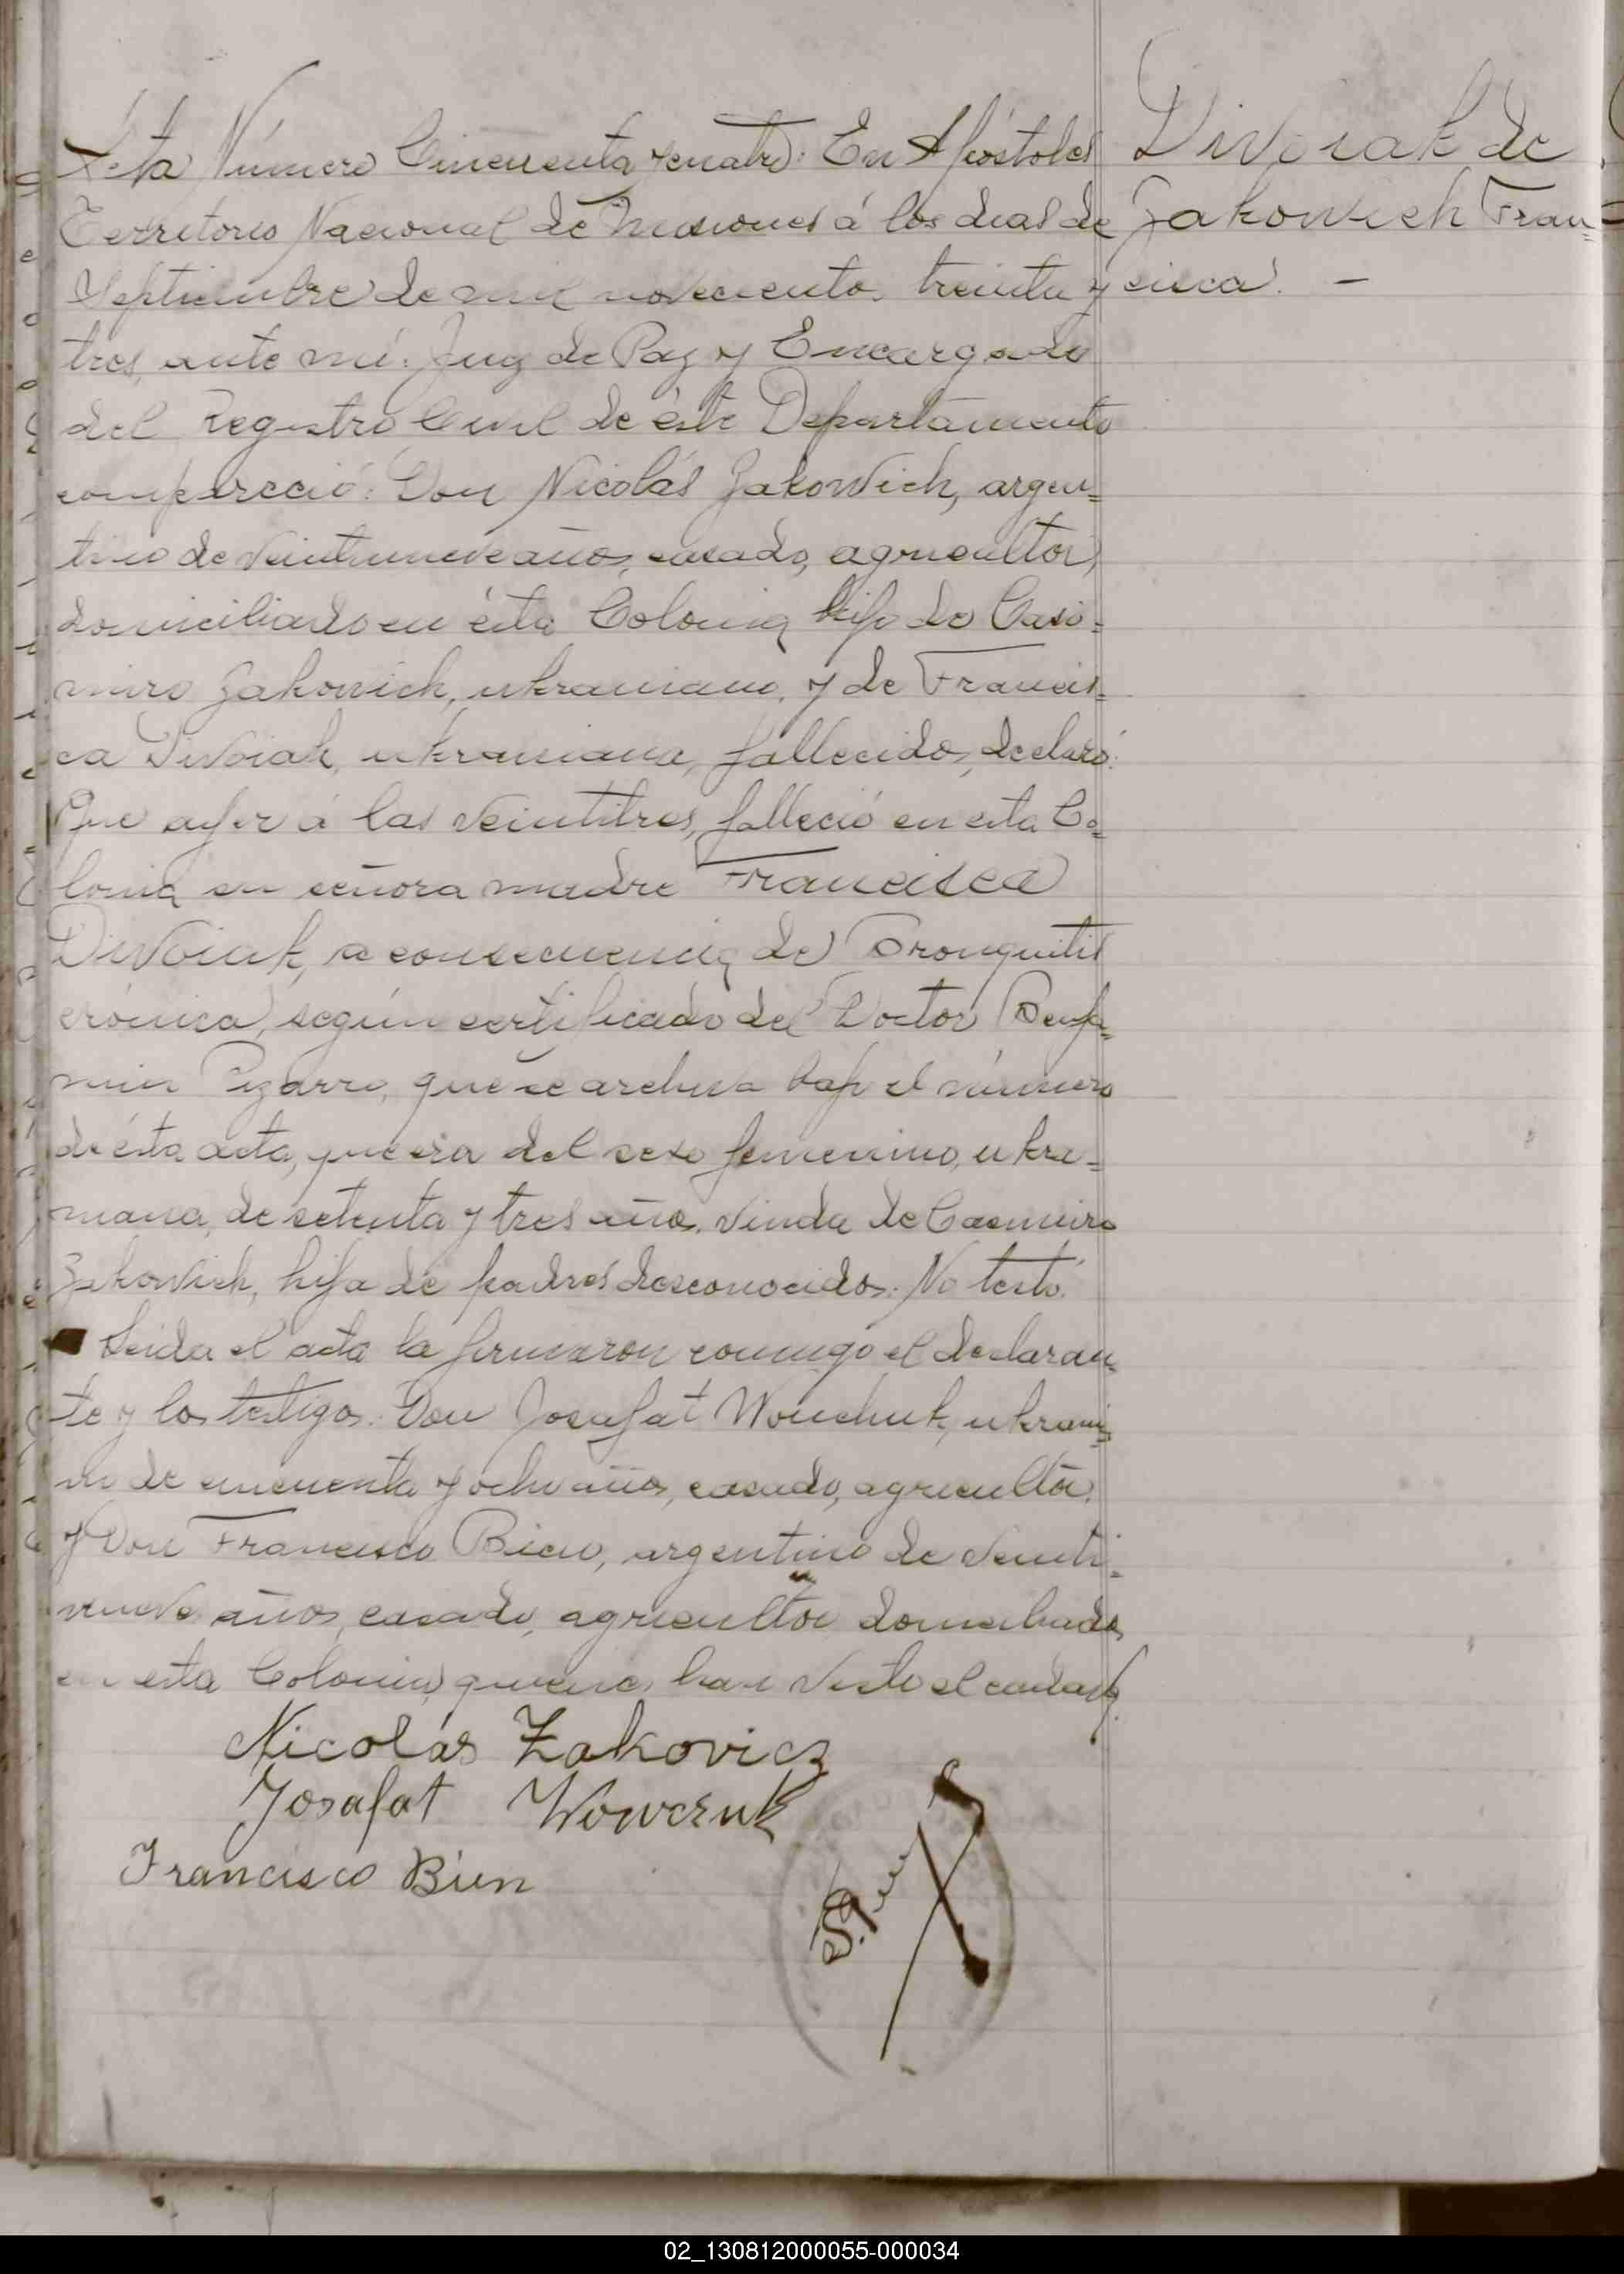 Acta Número Cincuenta y cuatro: En Apóstoles
Territorio Nacional de Misiones á los dias de
Septiembre de mil novecientos treinta y
tres, ante mi: Juez de Paz y Encargado
del Registro Civil de éste Departamento
compareció: Don Nicolás Zakowich, argen=
tino de veintinueve años, casado, agricultor,
domiciliado en ésta Colonia, hijo de Casi=
miro Zakowich, ukraniano, y de Francis=
ca Divoiak, ukraniana, fallecidos, declaró:
Que ayer á las veintitres, falleció en esta Co=
lonia su señora madre Francisca
Divoiak, a consecuencia de Bronquitis
crónica, según certificado del Doctor Benja=
min Pizarro, que se archiva bajo el número
de ésta acta, que era del sexo femenino, ukra=
niana, de setenta y tres años, viuda de Casimiro
Zakowich, hija de padres desconocidos. No testó.
Leida el acta la firmaron conmigo el declaran=
te y los testigos: Don Josafat Wouchuk, ukrani=
no de cincuenta y ocho años, casado, agricultor,
y Don Francisco Bien, argentino de veinti=
nueve años, casado, agricultor domiciliados
en esta Colonia, quienes han visto el cadaver.
Nicolás Zakovicz
Josafat Wowczuk
Francisco Bien
Divoiak de
Zakowich Fran=
cisca. —
02_130812000055-000034